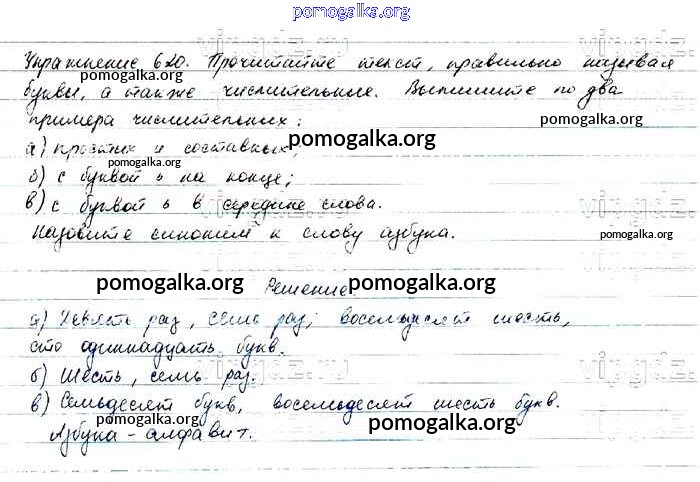 pomogalka.org
Упражнение 620. Прочитайте текст, правильно называя
pomogalka.org
буквы, а также числительные. Выпишите по два
примера числительных:
pomogalka.org
pomogalka.org
а) простых и составных;
pomogalka.org
б) с буквой ь на конце;
в) с буквой ь в середине слова.
vipgdz.ru
Назовите синоним к слову азбука.
pomogalka.org
pomogalka.org
pomogalka.org
Решение
а) Девять раз, семь раз; восемьдесят шесть,
сто одиннадцать букв.
б) Шесть, семь раз.
vipgdz.ru
в) Семьдесят букв, восемьдесят шесть букв.
pomogalka.org
pomogalka.org
Азбука - алфавит.